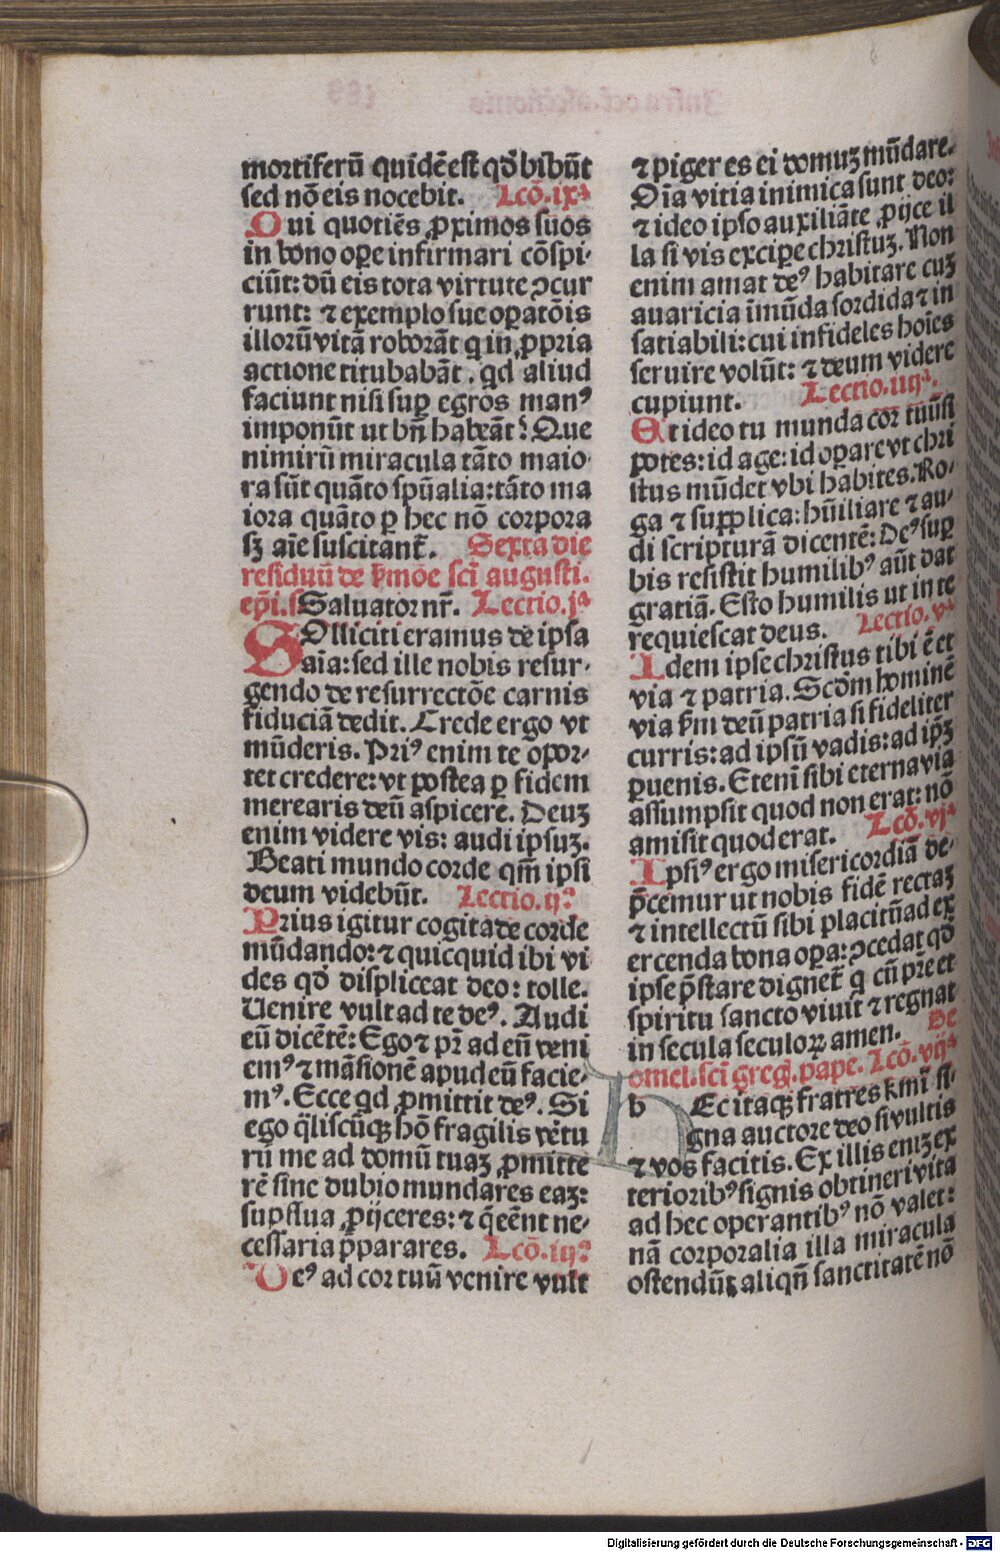 mortiferū quidē est qđ bibūt
sed nō eis nocebit. Lcō.ixª
Qui quotiēs ꝓximos suos
in bono oꝑe infirmari cōspi-
ciūt: dū eis tota virtute ↄcur
runt: ⁊ exemplo sue oꝑatōis
illorū vitā roborāt q in ꝓpria
actione titubabāt. qd aliud
faciunt nisi suꝑ egros man⁹
imponūt ut bn̄ habeāt? Que
nimirū miracula tāto maio-
ra sūt quāto spūalia: tāto ma
iora quāto ꝑ hec nō corpora
sꝫ aīe suscitant̄. Sexta die
residuū de ẜmōe sci augusti.
ep̄i. sSaluator nr̄. Lectio.jª
SOlliciti eramus de ipsa
aīa: sed ille nobis resur-
gendo de resurrectōe carnis
fiduciā dedit. Crede ergo vt
mūderis. Pri⁹ enim te opor-
tet credere: vt postea ꝑ fidem
merearis deū aspicere. Deuꝫ
enim videre vis: audi ipsuꝫ.
Beati mundo corde qm̄ ipsi
deum videbūt. Lectio.ijª
Prius igitur cogita de corde
mūdando: ⁊ quicquid ibi vi
des qđ displiceat deo: tolle.
Venire vult ad te de⁹. Audi
eū dicētē: Ego ⁊ pr̄ ad eū veni
em⁹ ⁊ māsionē apud eū facie-
m⁹. Ecce qd ꝓmittit de⁹. Si
ego q̄liscūqꝫ hō fragilis vētu
rū me ad domū tuaꝫ ꝓmitte
rē sine dubio mundares eaꝫ:
suꝑflua ꝓijceres: ⁊ q̄ eēnt ne-
cessaria p̄parares. Lcō.iijª
De⁹ ad cor tuū venire vult
⁊ piger es ei domuꝫ mūdare.
Oīa vitia inimica sunt deo:
⁊ ideo ipso auxiliāte ꝓijce il
la si vis exciꝑe christuꝫ. Non
enim amat de⁹ habitare cuꝫ
auaricia īmūda sordida ⁊ in
satiabili: cui infideles hoīes
seruire volūt: ⁊ deum videre
cupiunt. Lectio.iiijª.
Et ideo tu munda cor tuū si
potes: id age: id oꝑare vt chri
stus mūdet vbi habites. Ro-
ga ⁊ supplica: hūiliare ⁊ au-
di scripturā dicentē: De⁹ suꝑ
bis resistit humilib⁹ aūt dat
gratiā. Esto humilis ut in te
requiescat deus. Lectio.vª
Idem ipse christus tibi ē et
via ⁊ patria. Scđm hominē
via ẜm deū patria si fideliter
curris: ad ipsū vadis: ad ipꝫ
ꝑuenis. Etenī sibi eterna via
assumpsit quod non erat: nō
amisit quod erat. Lcō.vjª
Ipsi⁹ ergo misericordiā de-
p̄cemur ut nobis fidē rectaꝫ
⁊ intellectū sibi placitū ad ex
ercenda bona oꝑa: ↄcedat qđ
ipse p̄stare dignet̄ q cū pr̄e et
spiritu sancto viuit ⁊ regnat
in secula seculoꝝ amen. De
omel. sci greḡ. pape. Lcō.vijª
hEc itaqꝫ fratres kmī si-
gna auctore deo si vultis
⁊ vos facitis. Ex illis eniꝫ ex
teriorib⁹ signis obtineri vita
ad hec operantib⁹ nō valet:
nā corporalia illa miracula
ostendūt aliqn̄ sanctitatē nō
Digitalisierung gefördert durch die Deutsche Forschungsgemeinschaft - DFG